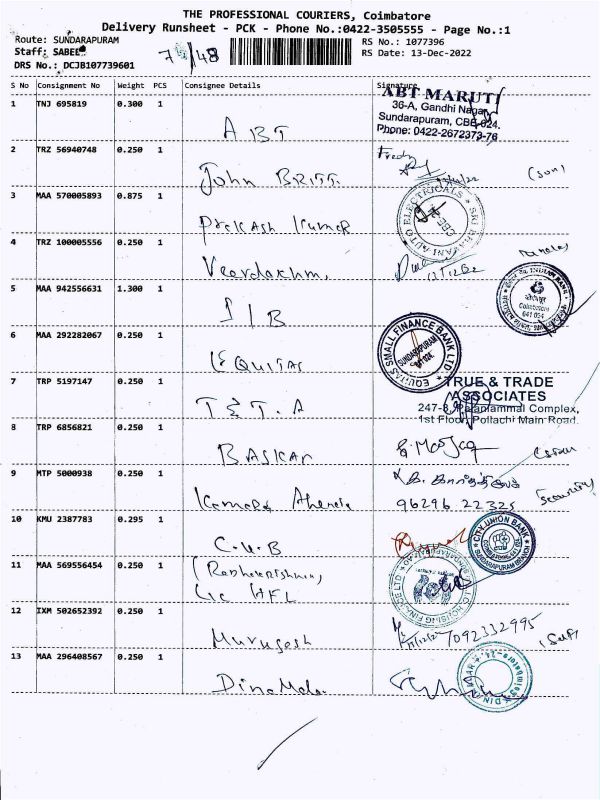 THE PROFESSIONAL COURIERS, Coimbatore
Delivery Runsheet - PCK - Phone No.:0422-3505555 - Page No.:1
Route: SUNDARAPURAM
RS No.: 1077396
Staff:
RS Date: 13-Dec-2022
DRS No.: DCJB107739601
S No Consignment No Weight PCS Consignee Details Signature
1 TNJ 695819 0.300 1 ABT
ABT MARUTI
36-A, Gandhi Nagar,
Sundarapuram, CBE-024.
Phone: 0422-2672373-76
2 TRZ 56940748 0.250 1 John BRITT.
(son)
3 MAA 570005893 0.875 1 Prakash Kumar
4 TRZ 100005556 0.250 1
5 MAA 942556631 1.300 1 IIB
INDIAN BANK
Coimbatore
641 024
6 MAA 292282067 0.250 1 EQUITAS
EQUITAS SMALL FINANCE BANK LTD
SUNDARAPURAM
7 TRP 5197147 0.250 1 T & T. A
TRUE & TRADE
ASSOCIATES
247-8, Paraniammal Complex,
1st Floor, Pollachi Main Road.
8 TRP 6856821 0.250 1 BASKAR
9 MTP 5000938 0.250 1
96296 22325
Security
10 KMU 2387783 0.295 1 C.U.B
CITY UNION BANK
SUNDARAPURAM BRANCH
11 MAA 569556454 0.250 1
Lic HFL
12 IXM 502652392 0.250 1 Murugesh
7092332995
(Self)
13 MAA 296408567 0.250 1